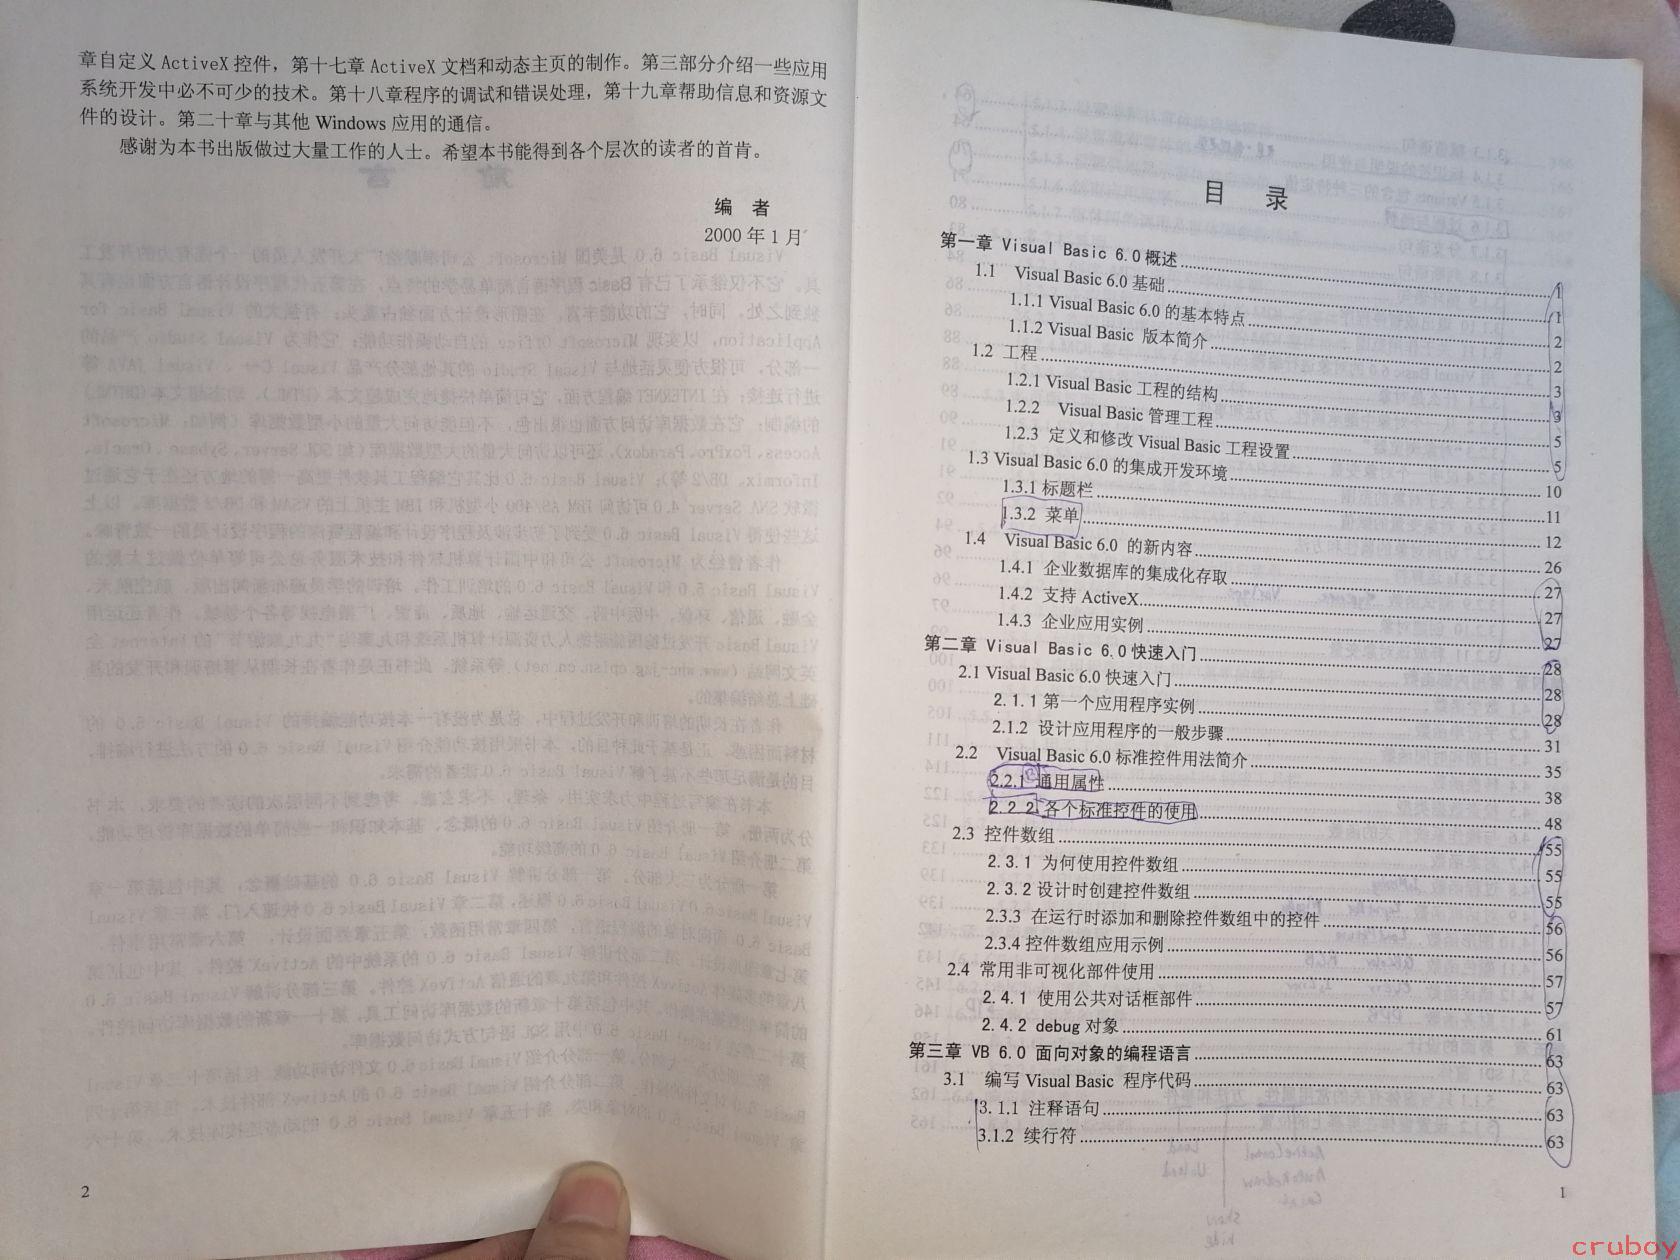 章自定义 ActiveX 控件，第十七章 ActiveX 文档和动态主页的制作。第三部分介绍一些应用
系统开发中必不可少的技术。第十八章程序的调试和错误处理，第十九章帮助信息和资源文
件的设计。第二十章与其他 Windows 应用的通信。
感谢为本书出版做过大量工作的人士。希望本书能得到各个层次的读者的首肯。
编 者
2000 年 1 月
2
目 录
第一章 Visual Basic 6.0 概述 1
1.1 Visual Basic 6.0 基础 1
1.1.1 Visual Basic 6.0 的基本特点 2
1.1.2 Visual Basic 版本简介 2
1.2 工程 3
1.2.1 Visual Basic 工程的结构 3
1.2.2 Visual Basic 管理工程 5
1.2.3 定义和修改 Visual Basic 工程设置 5
1.3 Visual Basic 6.0 的集成开发环境 10
1.3.1 标题栏 11
1.3.2 菜单 12
1.4 Visual Basic 6.0 的新内容 26
1.4.1 企业数据库的集成化存取 27
1.4.2 支持 ActiveX 27
1.4.3 企业应用实例 27
第二章 Visual Basic 6.0 快速入门 28
2.1 Visual Basic 6.0 快速入门 28
2.1.1 第一个应用程序实例 28
2.1.2 设计应用程序的一般步骤 31
2.2 Visual Basic 6.0 标准控件用法简介 35
2.2.1 通用属性 38
2.2.2 各个标准控件的使用 48
2.3 控件数组 55
2.3.1 为何使用控件数组 55
2.3.2 设计时创建控件数组 55
2.3.3 在运行时添加和删除控件数组中的控件 56
2.3.4 控件数组应用示例 56
2.4 常用非可视化部件使用 57
2.4.1 使用公共对话框部件 57
2.4.2 debug 对象 61
第三章 VB 6.0 面向对象的编程语言 63
3.1 编写 Visual Basic 程序代码 63
3.1.1 注释语句 63
3.1.2 续行符 63
1
cruboy